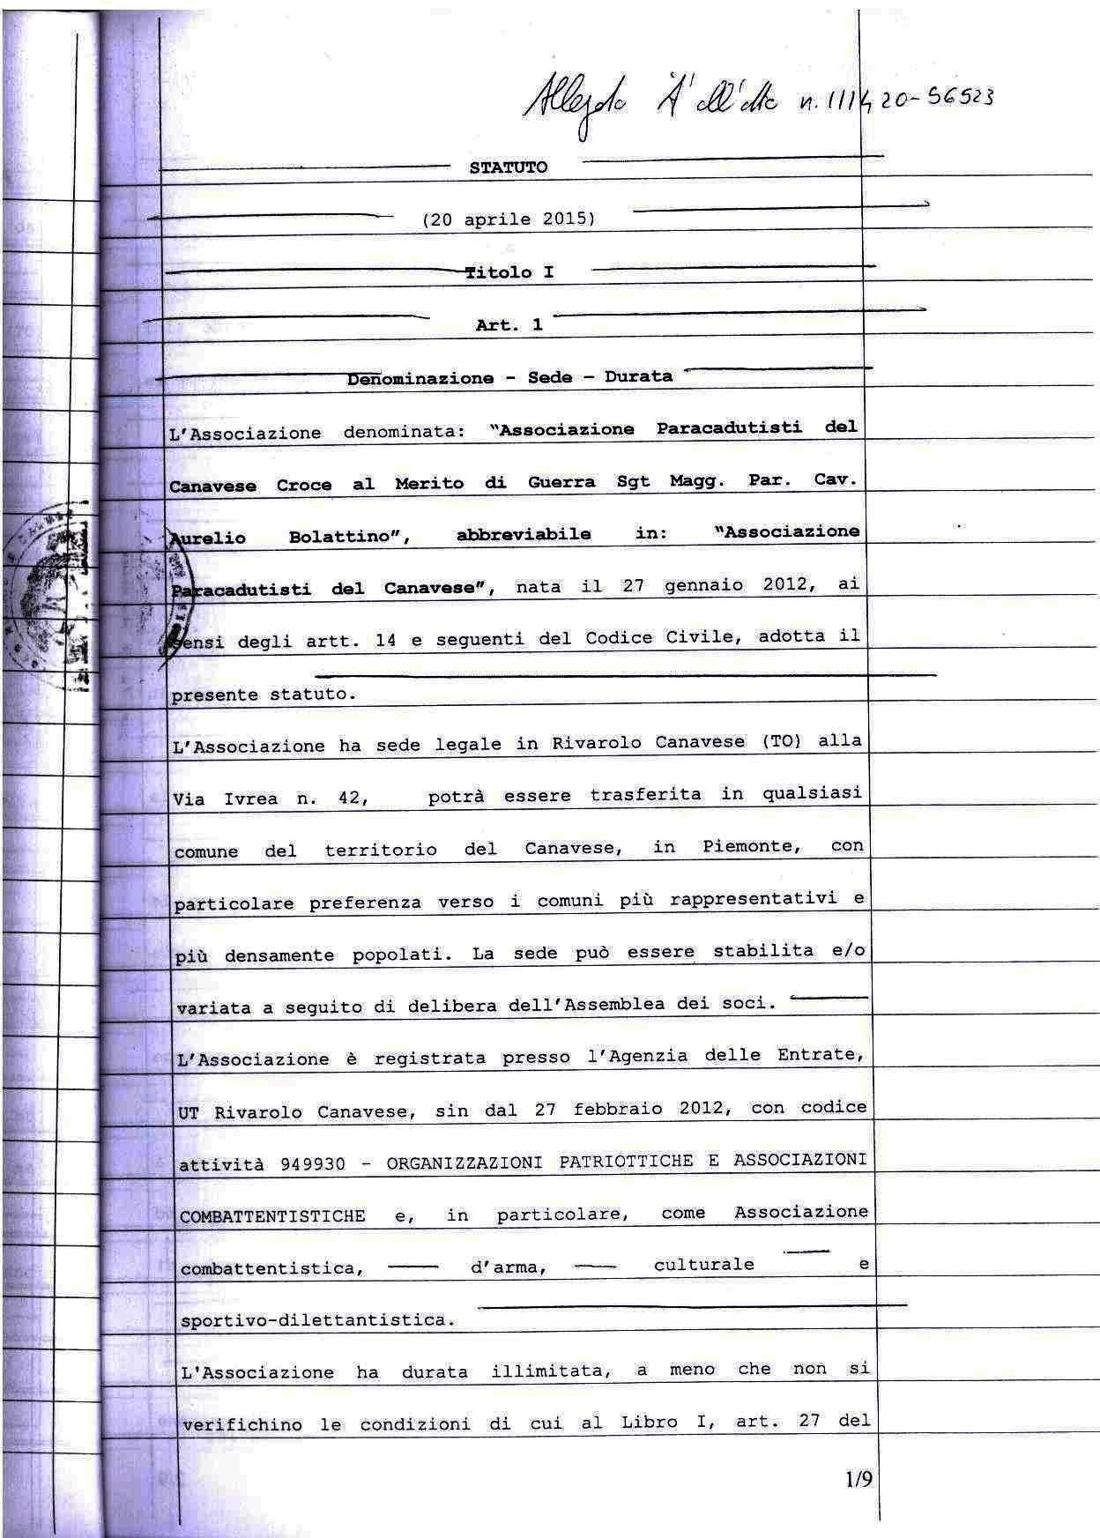 Allegato "A" all'atto n. 111420-56523
STATUTO
(20 aprile 2015)
Titolo I
Art. 1
Denominazione - Sede - Durata
L'Associazione denominata: "Associazione Paracadutisti del
Canavese Croce al Merito di Guerra Sgt Magg. Par. Cav.
Aurelio Bolattino", abbreviabile in: "Associazione
Paracadutisti del Canavese", nata il 27 gennaio 2012, ai
sensi degli artt. 14 e seguenti del Codice Civile, adotta il
presente statuto.
L'Associazione ha sede legale in Rivarolo Canavese (TO) alla
Via Ivrea n. 42, potrà essere trasferita in qualsiasi
comune del territorio del Canavese, in Piemonte, con
particolare preferenza verso i comuni più rappresentativi e
più densamente popolati. La sede può essere stabilita e/o
variata a seguito di delibera dell'Assemblea dei soci.
L'Associazione è registrata presso l'Agenzia delle Entrate,
UT Rivarolo Canavese, sin dal 27 febbraio 2012, con codice
attività 949930 - ORGANIZZAZIONI PATRIOTTICHE E ASSOCIAZIONI
COMBATTENTISTICHE e, in particolare, come Associazione
combattentistica, d'arma, culturale e
sportivo-dilettantistica.
L'Associazione ha durata illimitata, a meno che non si
verifichino le condizioni di cui al Libro I, art. 27 del
1/9